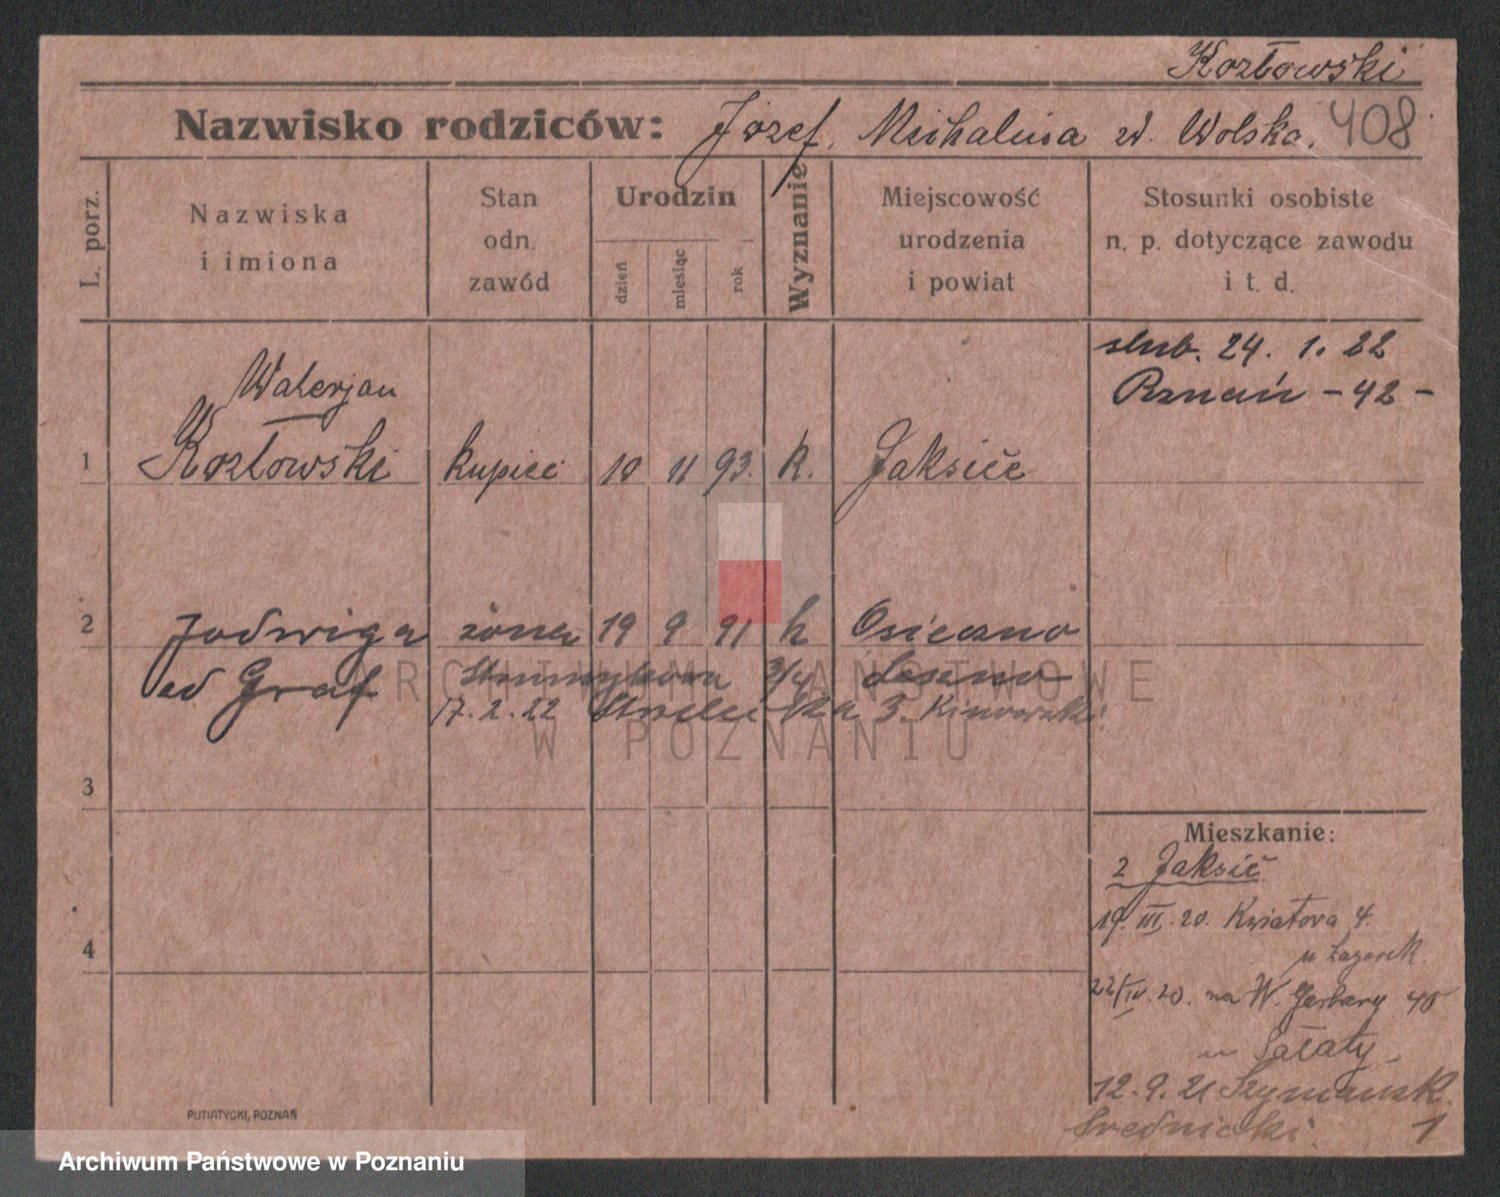 Kozłowski
Nazwisko rodziców: Józef, Michalina zd. Wolska. 408
L. porz.
Nazwiska i imiona
Stan odn. zawód
Urodzin
dzień miesiąc rok
Wyznanie
Miejscowość urodzenia i powiat
Stosunki osobiste n. p. dotyczące zawodu i t. d.
ślub. 24. 1. 22
Poznań - 42 -
Walerjan
1 Kozłowski kupiec 10 11 93. k. Jaksice
2 Jadwiga żona 19 9 91 k Osieczno
zd Graf Strumykowa 3/4 Leszno
17. 2. 22 Strzelecka 3.
3
4
Mieszkanie:
z Jaksic
19. III. 20. Kwiatowa 4.
u
22/IV. 20. na W. Garbary 40
u Sałaty
12. 9. 21 Szymańsk.
Średnicki. 1
PUTIATYCKI, POZNAŃ
ARCHIWUM PAŃSTWOWE
W POZNANIU
Archiwum Państwowe w Poznaniu